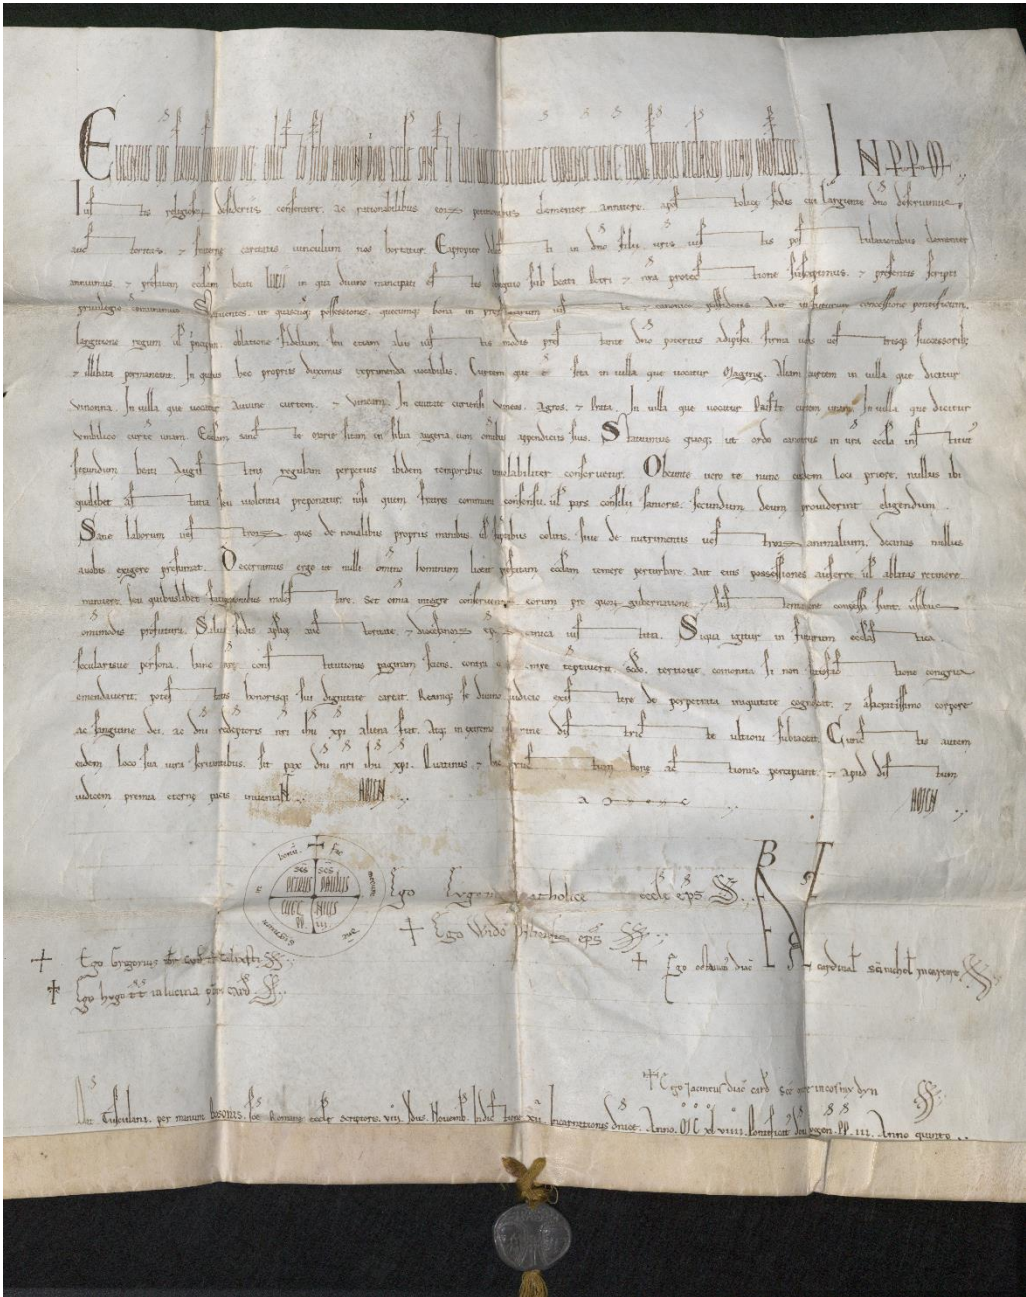 Eugenius eps servus servorum dei. dilec tis filiis priori scti Lucii IN PPM
Iustis religiosorum desideriis consentire. ac rationabilibus eorum clementer annuere. apostolicę sedis cui largiente dno deservimus,
auctoritas. & fraterne caritatis vinculum nos hortatur. Eapropter dilecti in dno filii vris iustis postulationibus clementer
annuimus. & prefatam ecclam beati Lucii in qua divino mancipati estis obsequio sub beati Petri & nra protectione suscipimus. & presentis scripti
privilegio communimus. Statuentes. ut quascumq; possessiones. quecumq; bona in presentiarum iuste & canonice possidetis. Aut in futurum concessione pontificum.
largitione regum ul' principum. oblatione fidelium. seu etiam aliis iustis modis prestante dno poteritis adipisci. firma vobis vestrisq; successorib;
& illibata permaneant. In quibus hec propriis duximus exprimenda vocabulis. Curtem que ē sita in villa que vocatur Maging. Aliam curtem in villa que dicitur
vinonna. In villa que vocatur Anuine curtem. & vineam. In civitate curiensi vineas. Agros. & Prata. In villa que vocatur curtem unam. In villa que dicitur
vmbilico curtē unam. Ecclam sancte marie sitam in silva augeria cum omibus appendiciis suis. Statuimus quoq; ut ordo canonicus in vra eccla institutus
secundum beati Augustini regulam perpetuis ibidem temporibus inviolabiliter conservetur. Obeunte vero te nunc eiusdem loci priore. nullus ibi
qualibet astutia seu violentia preponatur. nisi quem fratres communi consensu. ul' pars consilii sanioris. secundum deum providerint eligendum.
Sane laborum vestrorum quos de novalibus propriis manibus. ul' sumptibus colitis. sive de nutrimentis vestrorum animalium. decimas nullus
a vobis exigere presumat. Decernimus ergo ut nulli omino hominum liceat prefatam ecclam temere perturbare. aut eius possessiones auferre. ul' ablatas retinere.
minuere. seu quibuslibet fatigationibus molestare. Set omia integre conserventur eorum pro quorum gubernatione & sustentatione concessa sunt. usibus
omimodis profutura. Salva sedis aplicę auctoritate. & diocesani epi canonica iustitia. Siqua igitur in futurum ecclesiastica.
secularisve persona. hanc nrę constitutionis paginam sciens. contra eam temere venire temptaverit. scdo. tertiove commonita si non satisfactione congrua
emendaverit. potestatis honorisq; sui dignitate careat. Reamq; se divino iudicio existere de perpetrata iniquitate cognoscat. & a sacratissimo corpore
ac sanguine dei. ac dni redeptoris nri ihu xpi aliena fiat. Atq; in extremo examine districte ultioni subiaceat. Cunctis autem
eidem loco sua iura servantibus. sit pax dni nri ihu xpi. Quatinus & hic fructum bonę actionis percipiant. & apud districtum
iudicem premia eternę pacis inveniant. AMEN. Amen. AMEN.
+ fac mecum dne signum in bonū
scs PETRUS scs PAULUS EUGENIUS PP III
Ego Eugenius catholice eccle eps SS.
+ Ego Wido Ostiensis eps SS.
+ Ego Gregorius tt calixti SS.
+ Ego octavian' diac cardinal' sci nicholai SS.
+ Ego hugo tt in lucina pbr card SS.
+ Ego Jacinctus diac card sce mar in cosmydyn SS.
Dat Tusculani. per manum bosonis. sce Romane eccle scriptoris. viii Idus. Novemb. Indictione xii. Incarnationis dnice. Anno. M C xl viiii. Pontificat' dni eugenii PP. iii. Anno quinto.